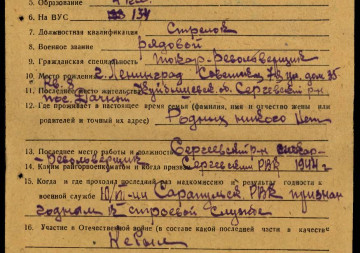 5. Образование 4 кл.
6. На ВУС 134
7. Должностная квалификация Стрелок
8. Военное звание Рядовой
9. Гражданская специальность токар-револьверщик
10. Место рождения г. Ленинград Советский
11. Последнее место жительства Куйбышевск. о. Сергеевский р-н
12. Где проживает в настоящее время семья (фамилия, имя и отчество жены или
родителей и точный их адрес) Родних никого нет
13. Последнее место работы и должность Сергеевский р-н токар-
-револьверщик
14. Каким райгорвоенкоматом и когда призван Сергеевский РВК 1944 г
15. Когда и где проходил последний раз медкомиссию и результат годности к
военной службе Сарапульск РВК признан
годным к строевой службе
16. Участие в Отечественной войне (в составе какой последней части и в качестве
Не был